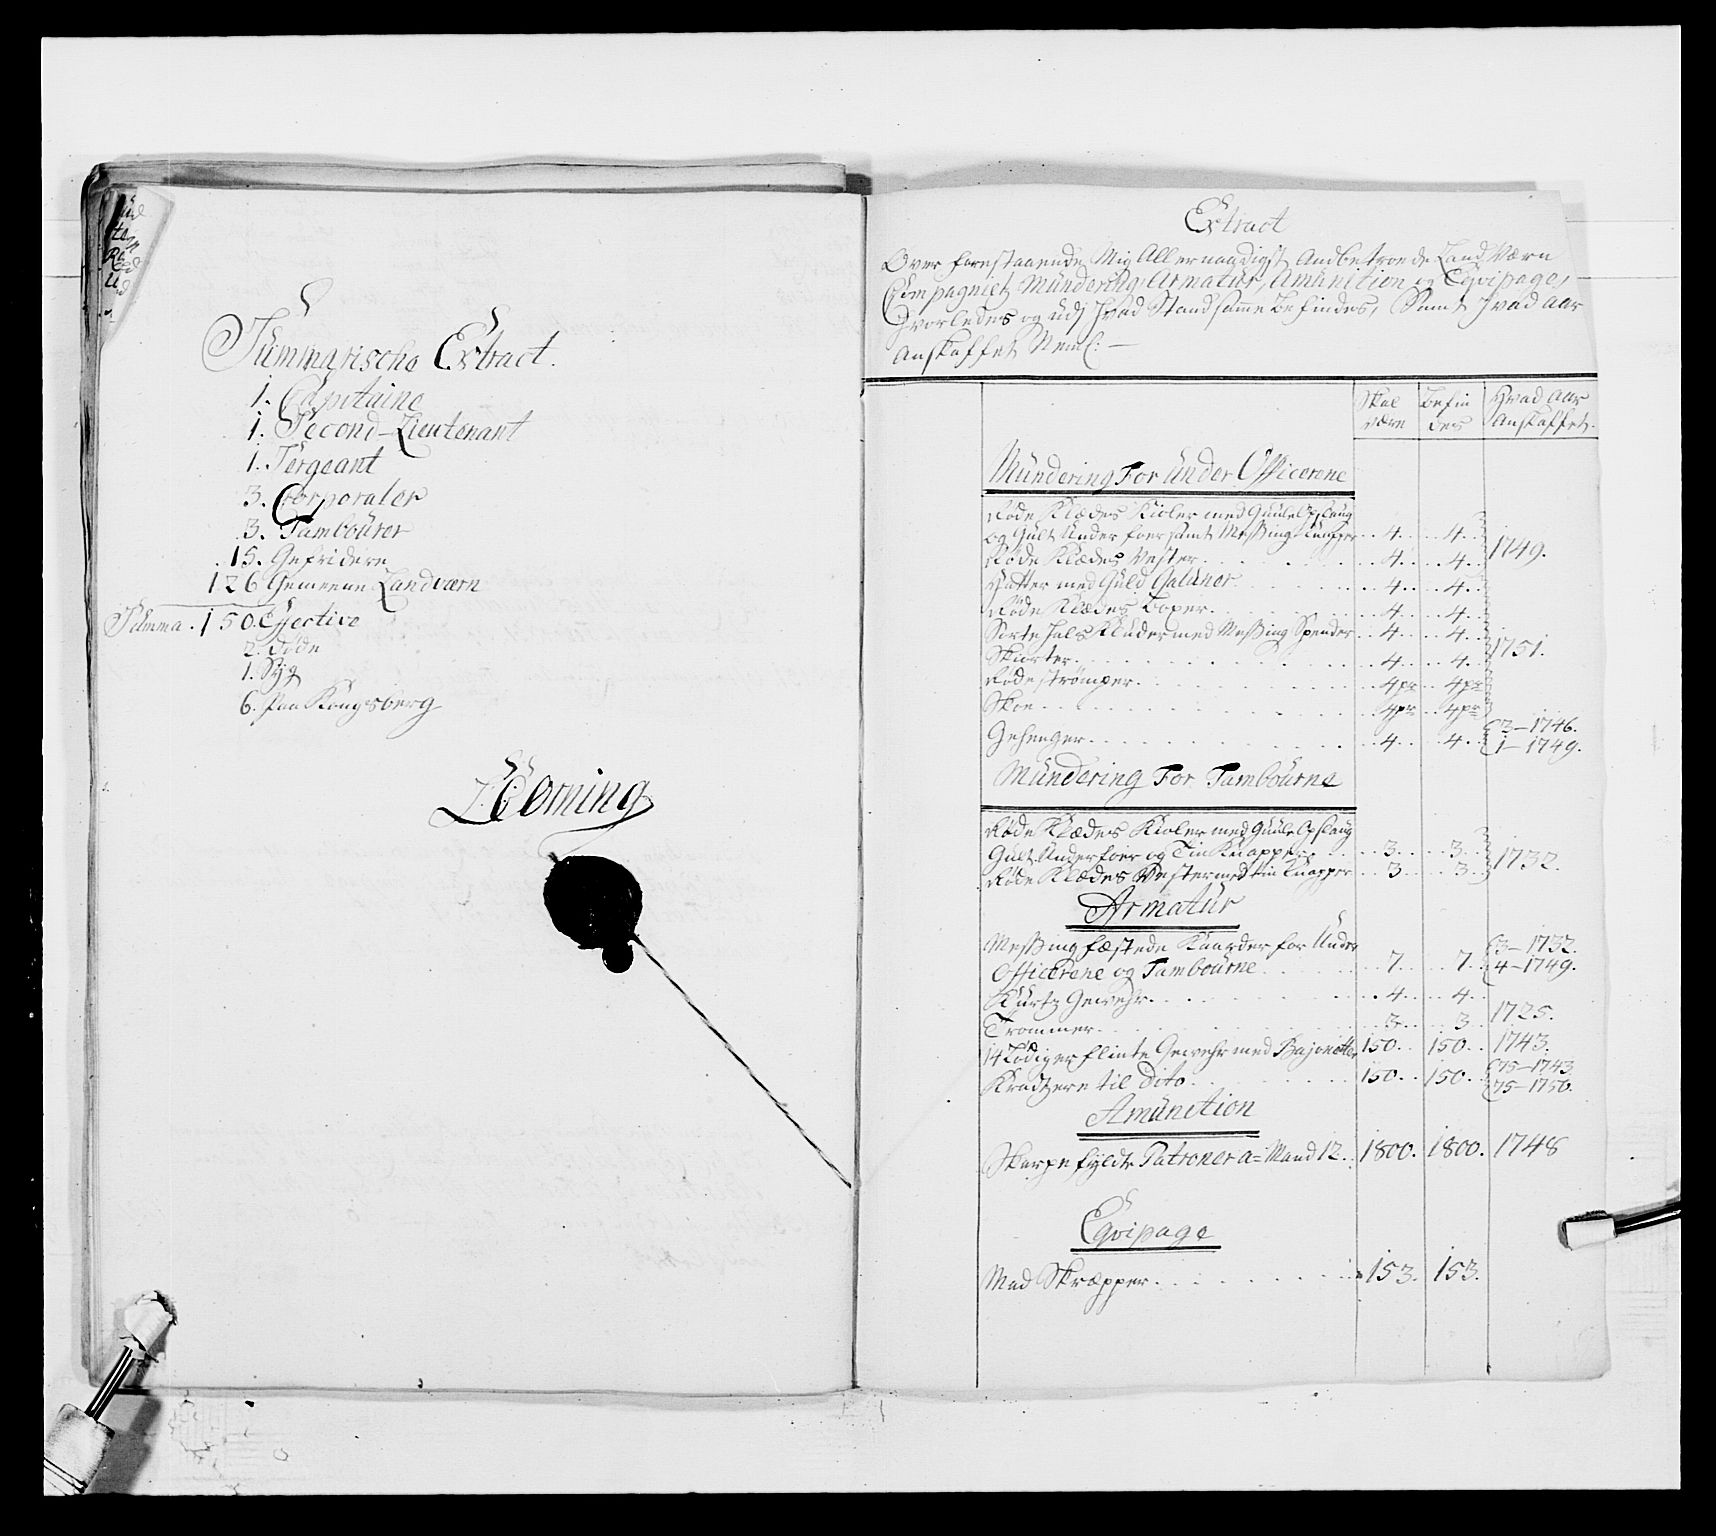 Summarische Extract.
1. Capitaine
1. Second-Lieutenant
1. Sergeant
3. Corporaler
3. Tambourer
15. Gefridere
126 Gemeene Landværn
Summa. 150. Effective
2. Døde
1. Syg
6. Paa Kongsberg
Extract
Over forestaaende Mig Allernaadigst Andbetroede Land Værn
Compagniet Mündering, Armatür, Amünition og Eqvipage,
Hvorledes og udj Hvad Stand samme befindes, Samt Hvad Aar
Anskaffet Neml: —
Skal være | Befindes | Hvad Aar Anskaffet.
Mündering For Under Officerene
Røde Klædes Kioler med Guule Opslaug
og Gult Under foer samt Messing Knapper .. 4. .. 4. 1749.
Røde Klædes Vester . . . 4. .. 4.
Hatter med Guld Galuner . . . 4. .. 4.
Røde Klædes Boxer . . . 4. .. 4.
Sorte Hals Kluder med Messing Spender .. 4. .. 4. 1751.
Skiorter . . . 4. .. 4.
Røde strømper . . . 4pr .. 4pr
Skoe . . . 4pr .. 4pr
Gehenger . . . 4. .. 4. 3-1746.
1-1749.
Mündering For Tambourne
Røde Klædes Kioler med Guule Opslaug
Gult Underfoer og Tin Knapper . . 3. .. 3. 1732.
Røde Klædes Vester med tin Knapper .. 3. .. 3.
Armatür
Messing fæstede Kaarder for Under 3-1732.
Officerene og Tambourne . . . 7. .. 7. 4-1749.
Kürtz Gewehr . . . 4. .. 4.
Trommer . . . 3. .. 3. 1725.
14 Lødiger Flinte Gewehr med Bajonetter 150. 150. 1743.
Kradtzere til Dito . . . 150. 150. 75-1743
75-1750.
Amünition
Skarpe fyldte Patroner a= Mand 12. 1800. 1800. 1748
Eqvipage
Mad Skræpper . . . 153. 153.